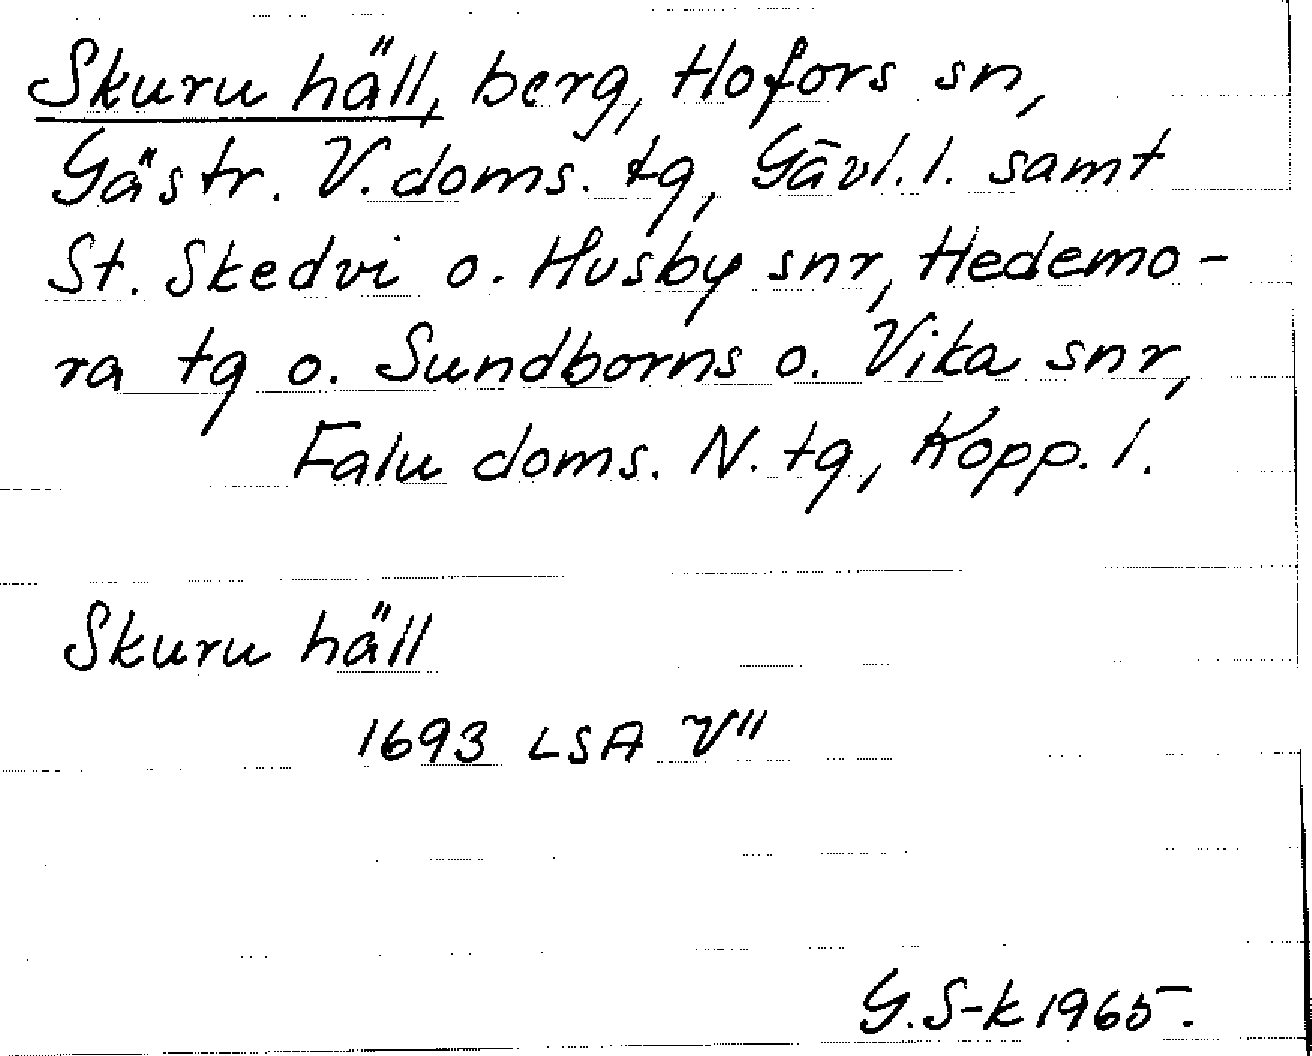 Skuru häll, berg, Hofors sn,
Gästr. V. doms. tg, Gävl. l. samt
St. Skedvi o. Husby snr, Hedemo-
ra tg o. Sundborns o. Vika snr,
Falu doms. N. tg, Kopp. l.
Skuru häll
1693 LSA V"
G. S-k 1965.